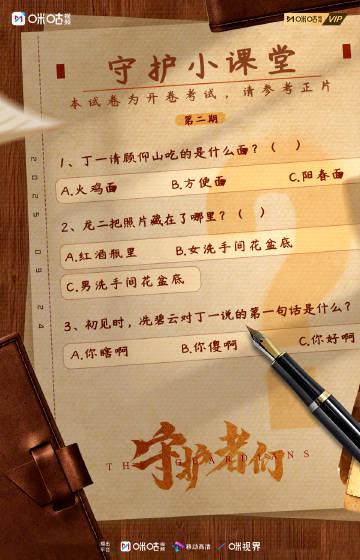 咪咕视频
咪咕视频 VIP
守护小课堂
本试卷为开卷考试，请参考正片
第二期
1、丁一请顾仰山吃的是什么面？（ ）
A.火鸡面 B.方便面 C.阳春面
2、龙二把照片藏在了哪里？（ ）
A.红酒瓶里 B.女洗手间花盆底
C.男洗手间花盆底
3、初见时，冼碧云对丁一说的第一句话是什么？
A.你瞎啊 B.你傻啊 C.你好啊
2025 09 24
守护者们
THE GUARDIANS
咪咕视频 移动高清 咪视界